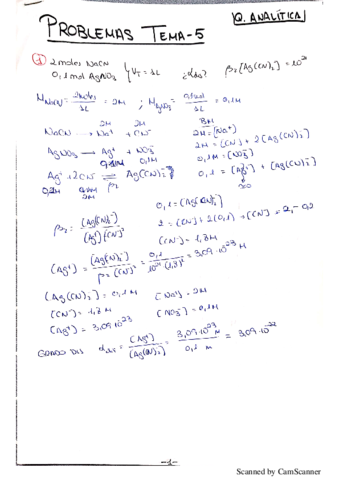 PROBLEMAS TEMA-5
Q. ANALÍTICA
① 2 moles NaCN
0,1 mol AgNO₃ } V_T = 1L β₂ [Ag(CN)₂⁻] = 10²¹
M NaCN = 2moles / 1L = 2M ; M AgNO₃ = 0,1mol / 1L = 0,1M
2M 2M BM
NaCN → Na⁺ + CN⁻ 2M = [Na⁺]
2M = [CN⁻] + 2[Ag(CN)₂⁻]
AgNO₃ → Ag⁺ + NO₃⁻ 0,1M = [NO₃⁻]
0,1M 0,1M
Ag⁺ + 2CN⁻ ⇌ Ag(CN)₂⁻ 0,1 = [Ag⁺] + [Ag(CN)₂⁻]
0,1M 2M β₂ ≈0
0,1 = [Ag(CN)₂⁻]
β₂ = [Ag(CN)₂⁻] / [Ag⁺][CN⁻]² 2 = [CN⁻] + 2(0,1) → [CN⁻] = 2 - 0,2
[CN⁻] = 1,8 M
[Ag⁺] = [Ag(CN)₂⁻] / β₂ [CN⁻]² = 0,1 / 10²¹ (1,8)² = 3,09·10⁻²³ M
[Ag(CN)₂⁻] = 0,1M [Na⁺] = 2M
[CN⁻] = 1,8 M [NO₃⁻] = 0,1M
[Ag⁺] = 3,09·10⁻²³
GRADO DIS α dis = [Ag⁺] / [Ag(CN)₂⁻] = 3,09·10⁻²³ M / 0,1 M = 3,09·10⁻²²
-1-
Scanned by CamScanner